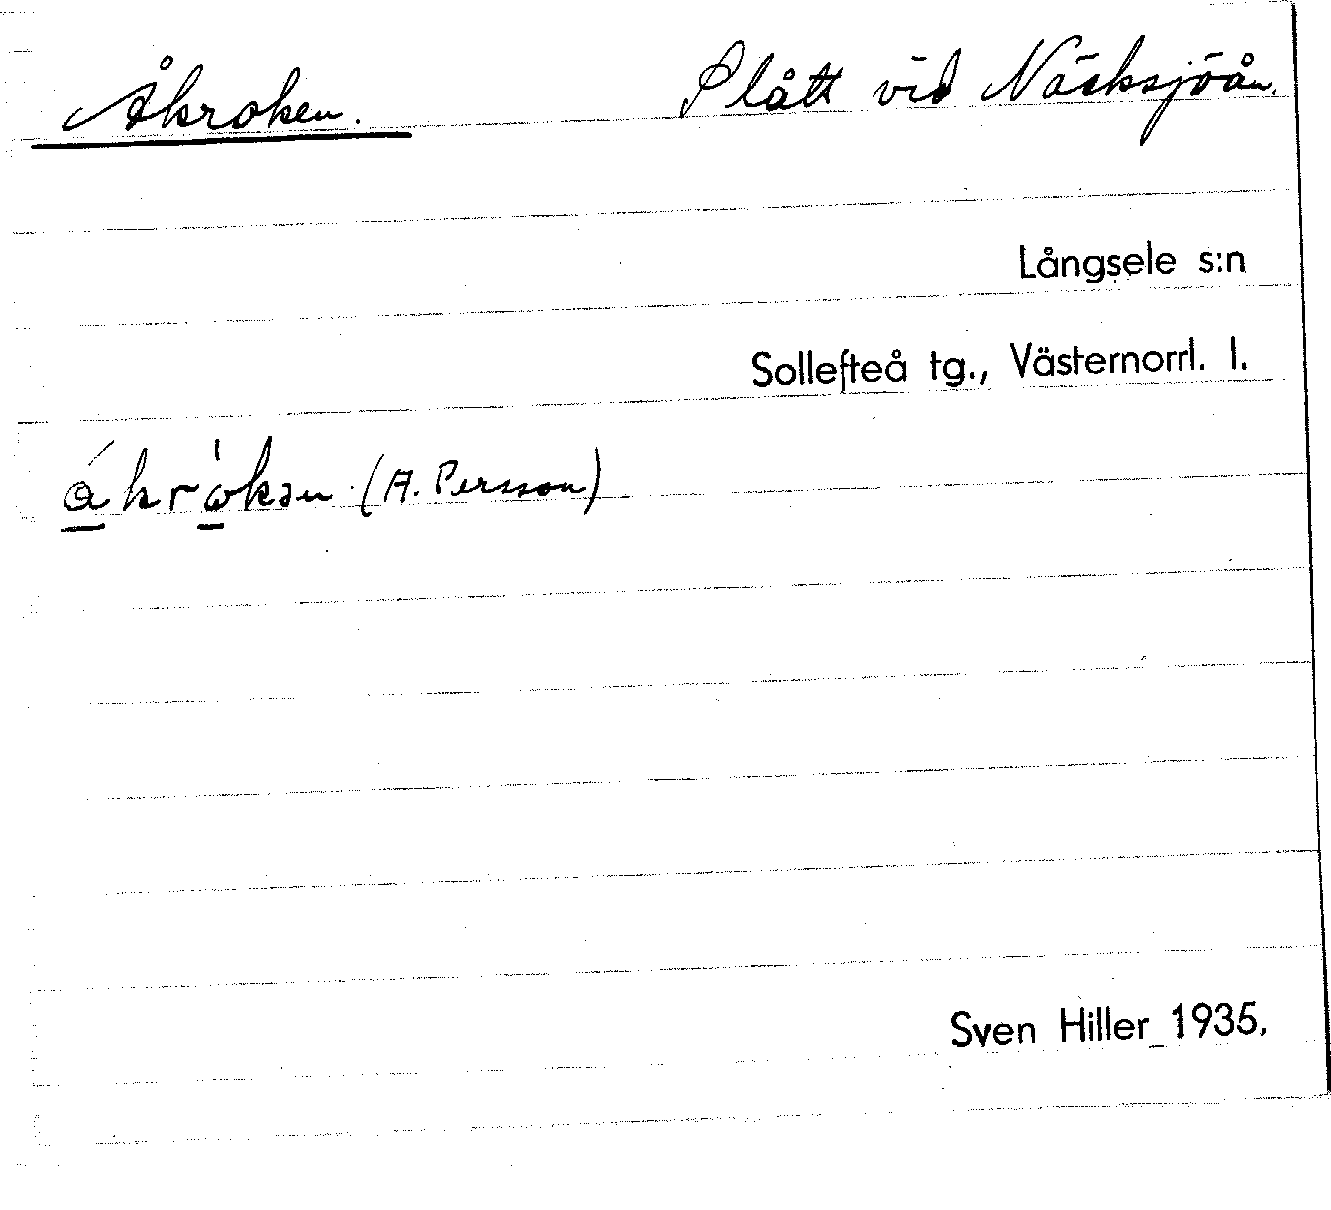 Åkroken. Slått vid Näcksjöån.
Långsele s:n
Sollefteå tg., Västernorrl. l.
(A. Persson)
Sven Hiller 1935.